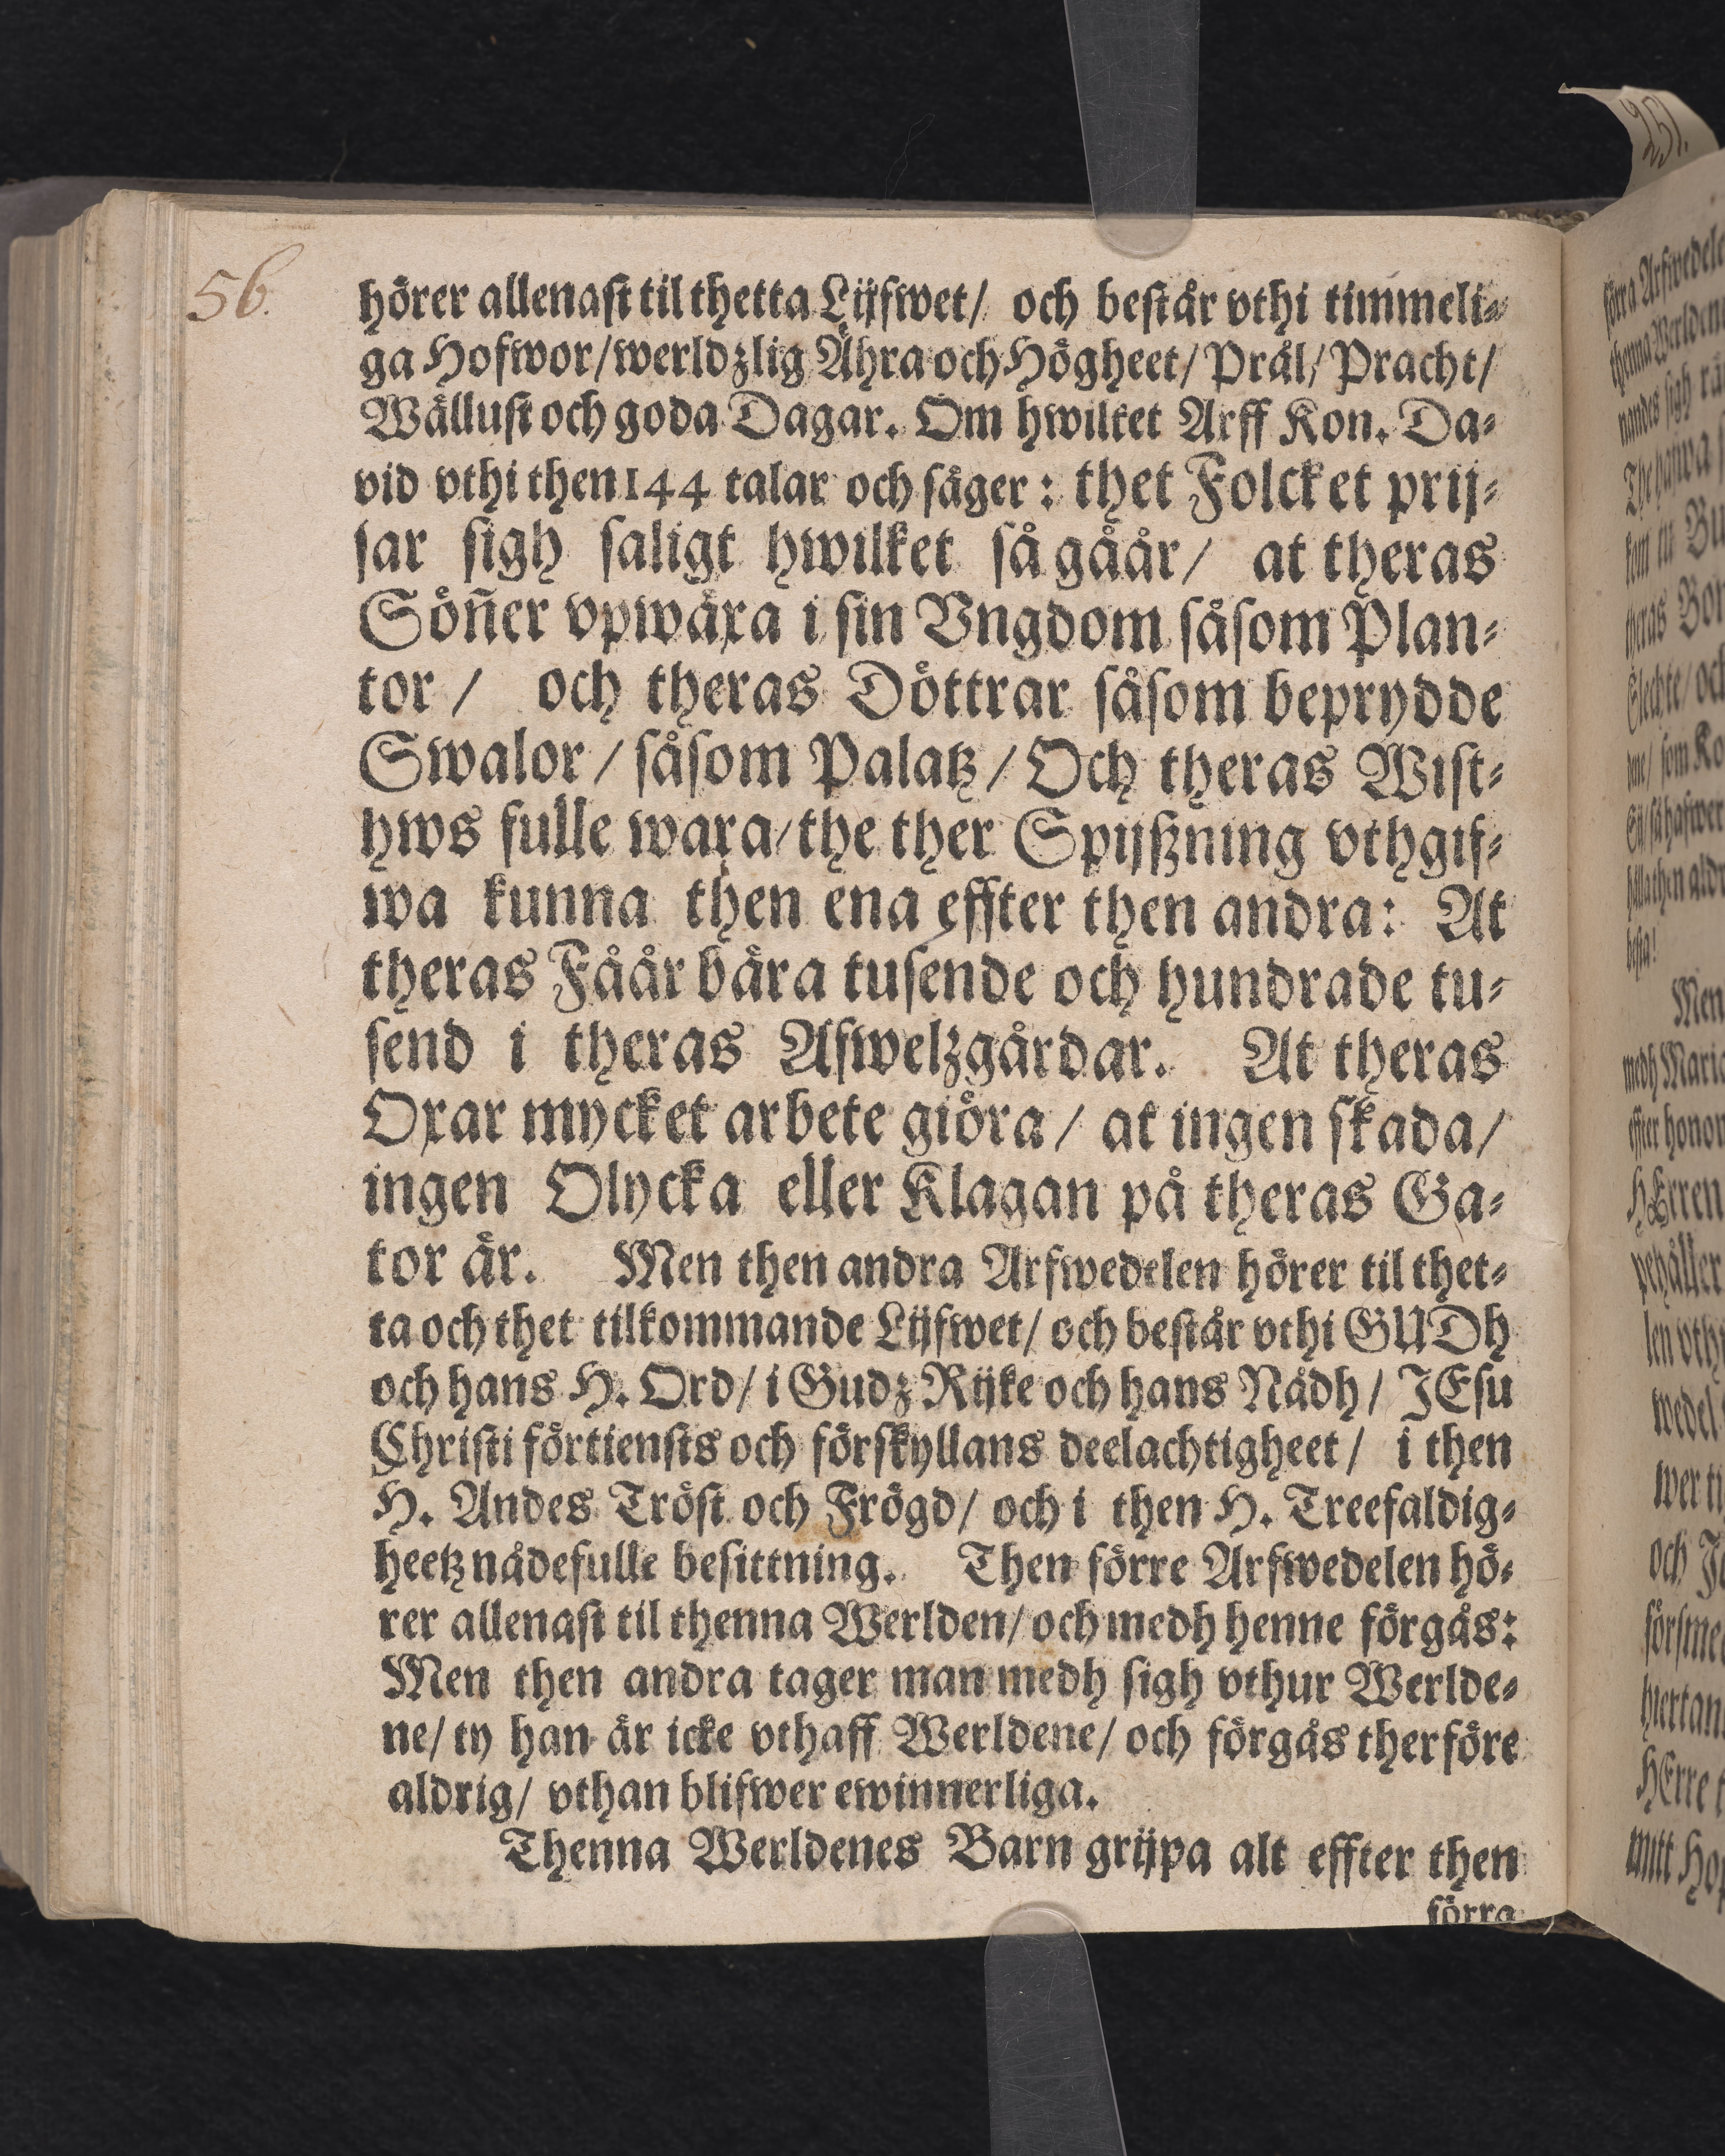 56.
hörer allenast til thetta Lijfwet/ och består vthi timmeli-
ga Hofwor/werldzlig Ähra och Högheet/ Prål/ Pracht/
Wällust och goda Dagar. Om hwilket Arff Kon. Da-
vid vthi then 144 talar och säger: thet Folcket prij-
sar sigh saligt hwilket så gåår/ at theras
Söñer vpwäxa i sin Vngdom såsom Plan-
tor/ och theras Döttrar såsom beprydde
Swalor/ såsom Palatz/ Och theras Wist-
hws fulle wara/ the ther Spijßning vthgif-
wa kunna then ena effter then andra: At
theras Fåår bära tusende och hundrade tu-
send i theras Afwelzgårdar. At theras
Oxar mycket arbete giöra/ at ingen skada/
ingen Olycka eller Klagan på theras Ga-
tor är. Men then andra Arfwedelen hörer til thet-
ta och thet tilkommande Lijfwet/ och består vthi GUDh
och hans H. Ord/ i Gudz Rijke och hans Nådh/ JEsu
Christi förtiensts och förskyllans deelachtigheet/ i then
H. Andes Tröst och Frögd/ och i then H. Treefaldig-
heetz nådefulle besittning. Then förre Arfwedelen hö-
rer allenast til thenna Werlden/ och medh henne förgås:
Men then andra tager man medh sigh vthur Werlde-
ne/ ty han är icke vthaff Werldene/ och förgås therföre
aldrig/ vthan blifwer ewinnerliga.
Thenna Werldenes Barn grijpa alt effter then
förra
251.
förra Arfwedele
thenna Werldene
nandes sigh
theras
Slechte/ och
besta!
Men
medh Maria
effter honom
HErren
wedel
och
hiertan
HErre
mitt